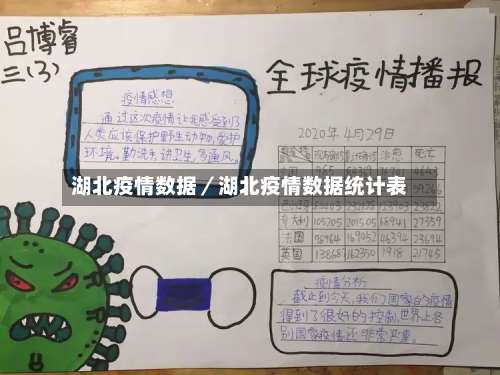 吕博睿
三(3)
全球疫情播报
疫情感想
通过这次疫情让我感受到了
人类应该保护野生动物,爱护
环境。勤洗手讲卫生,多通风。
2020年4月29日
治愈 死亡
湖北疫情数据/湖北疫情数据统计表
意大利 105205 201505 68941 27359
法国 96964 169052 46394 23694
英国 138687 162350 1918 21745
疫情分析
截止到今天,我们国家的疫情
得到了很好的控制,世界上各
别国家疫情还非常严重。